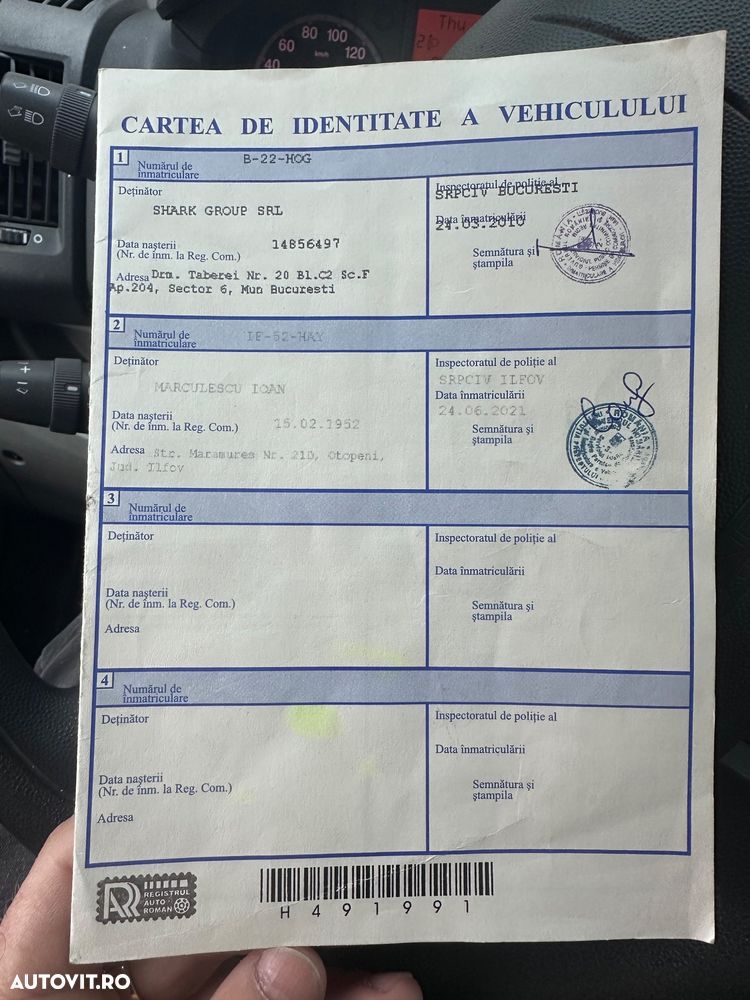 Thu
60 80 100 120
40
km/h
CARTEA DE IDENTITATE A VEHICULULUI
1 Numărul de înmatriculare B-22-HOG
Deținător
SHARK GROUP SRL
Data nașterii 14856497
(Nr. de înm. la Reg. Com.)
Adresa Drm. Taberei Nr. 20 Bl.C2 Sc.F
Ap.204, Sector 6, Mun Bucuresti
Inspectoratul de poliție al
SRPCIV BUCURESTI
Data înmatriculării
24.03.2010
Semnătura și
ștampila
2 Numărul de înmatriculare IF-52-HAY
Deținător
MARCULESCU IOAN
Data nașterii 15.02.1952
(Nr. de înm. la Reg. Com.)
Adresa Str. Maramures Nr. 21D, Otopeni,
Jud. Ilfov
Inspectoratul de poliție al
SRPCIV ILFOV
Data înmatriculării
24.06.2021
Semnătura și
ștampila
ROMÂNIA
3 Numărul de înmatriculare
Deținător
Data nașterii
(Nr. de înm. la Reg. Com.)
Adresa
Inspectoratul de poliție al
Data înmatriculării
Semnătura și
ștampila
4 Numărul de înmatriculare
Deținător
Data nașterii
(Nr. de înm. la Reg. Com.)
Adresa
Inspectoratul de poliție al
Data înmatriculării
Semnătura și
ștampila
REGISTRUL
AUTO
ROMAN
H491991
AUTOVIT.RO